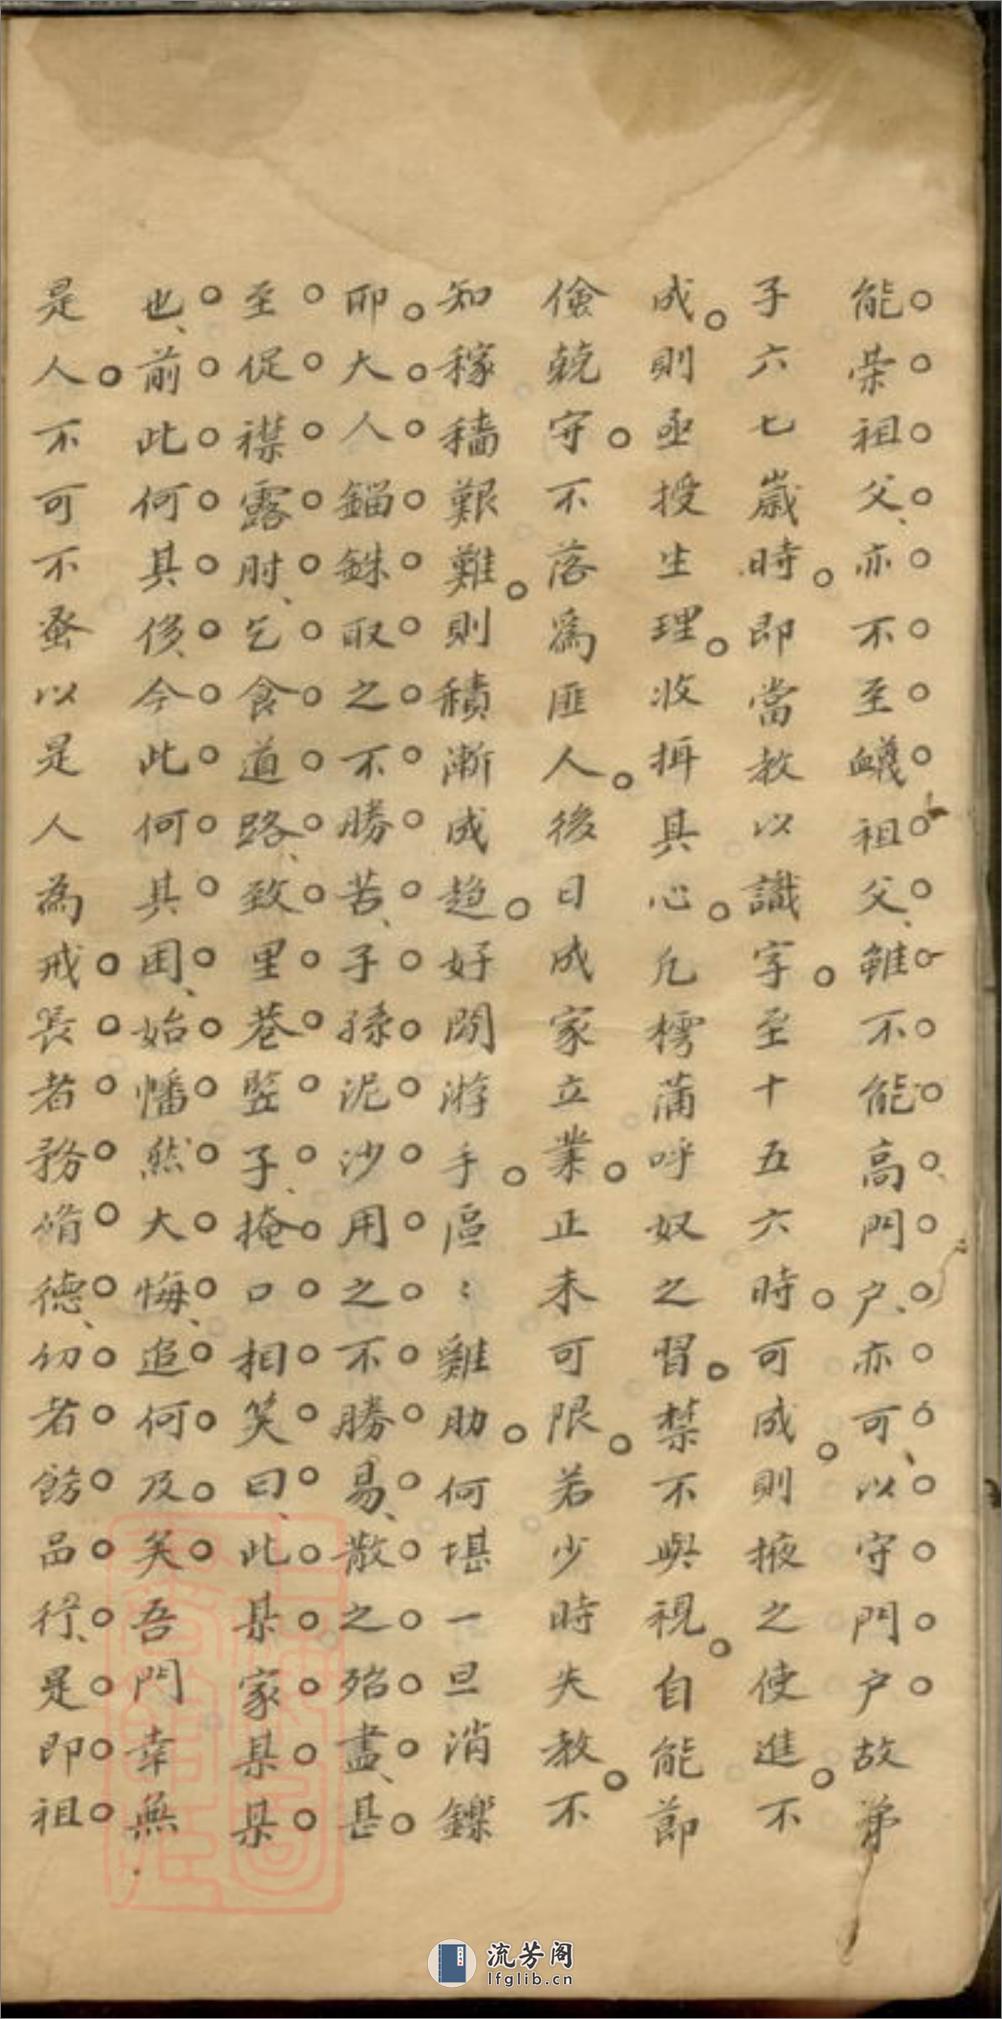 能荣祖父亦不至衊祖父雖不能高門户亦可以守門户故弟
子六七歲時即當教以識字至十五六時可成則掖之使進不
成則亟授生理收揖其心凢樗蒲呼奴之習禁不與視自能節
儉兢守不落爲匪人後日成家立業正未可限若少時失教不
知稼穡艱難則積漸成趋好閒游手區〻雞肋何堪一旦消鑠
卽大人錙銖取之不勝苦子孫泥沙用之不勝易散之殆盡甚
至促襟露肘乞食道路致里巷竪子掩口相笑曰此某家某某
也前此何其侈今此何其困始幡然大悔追何及矣吾門幸無
是人不可不蚤以是人為戒長者務脩德幼者飭品行是即祖
流芳阁
lfglib.cn